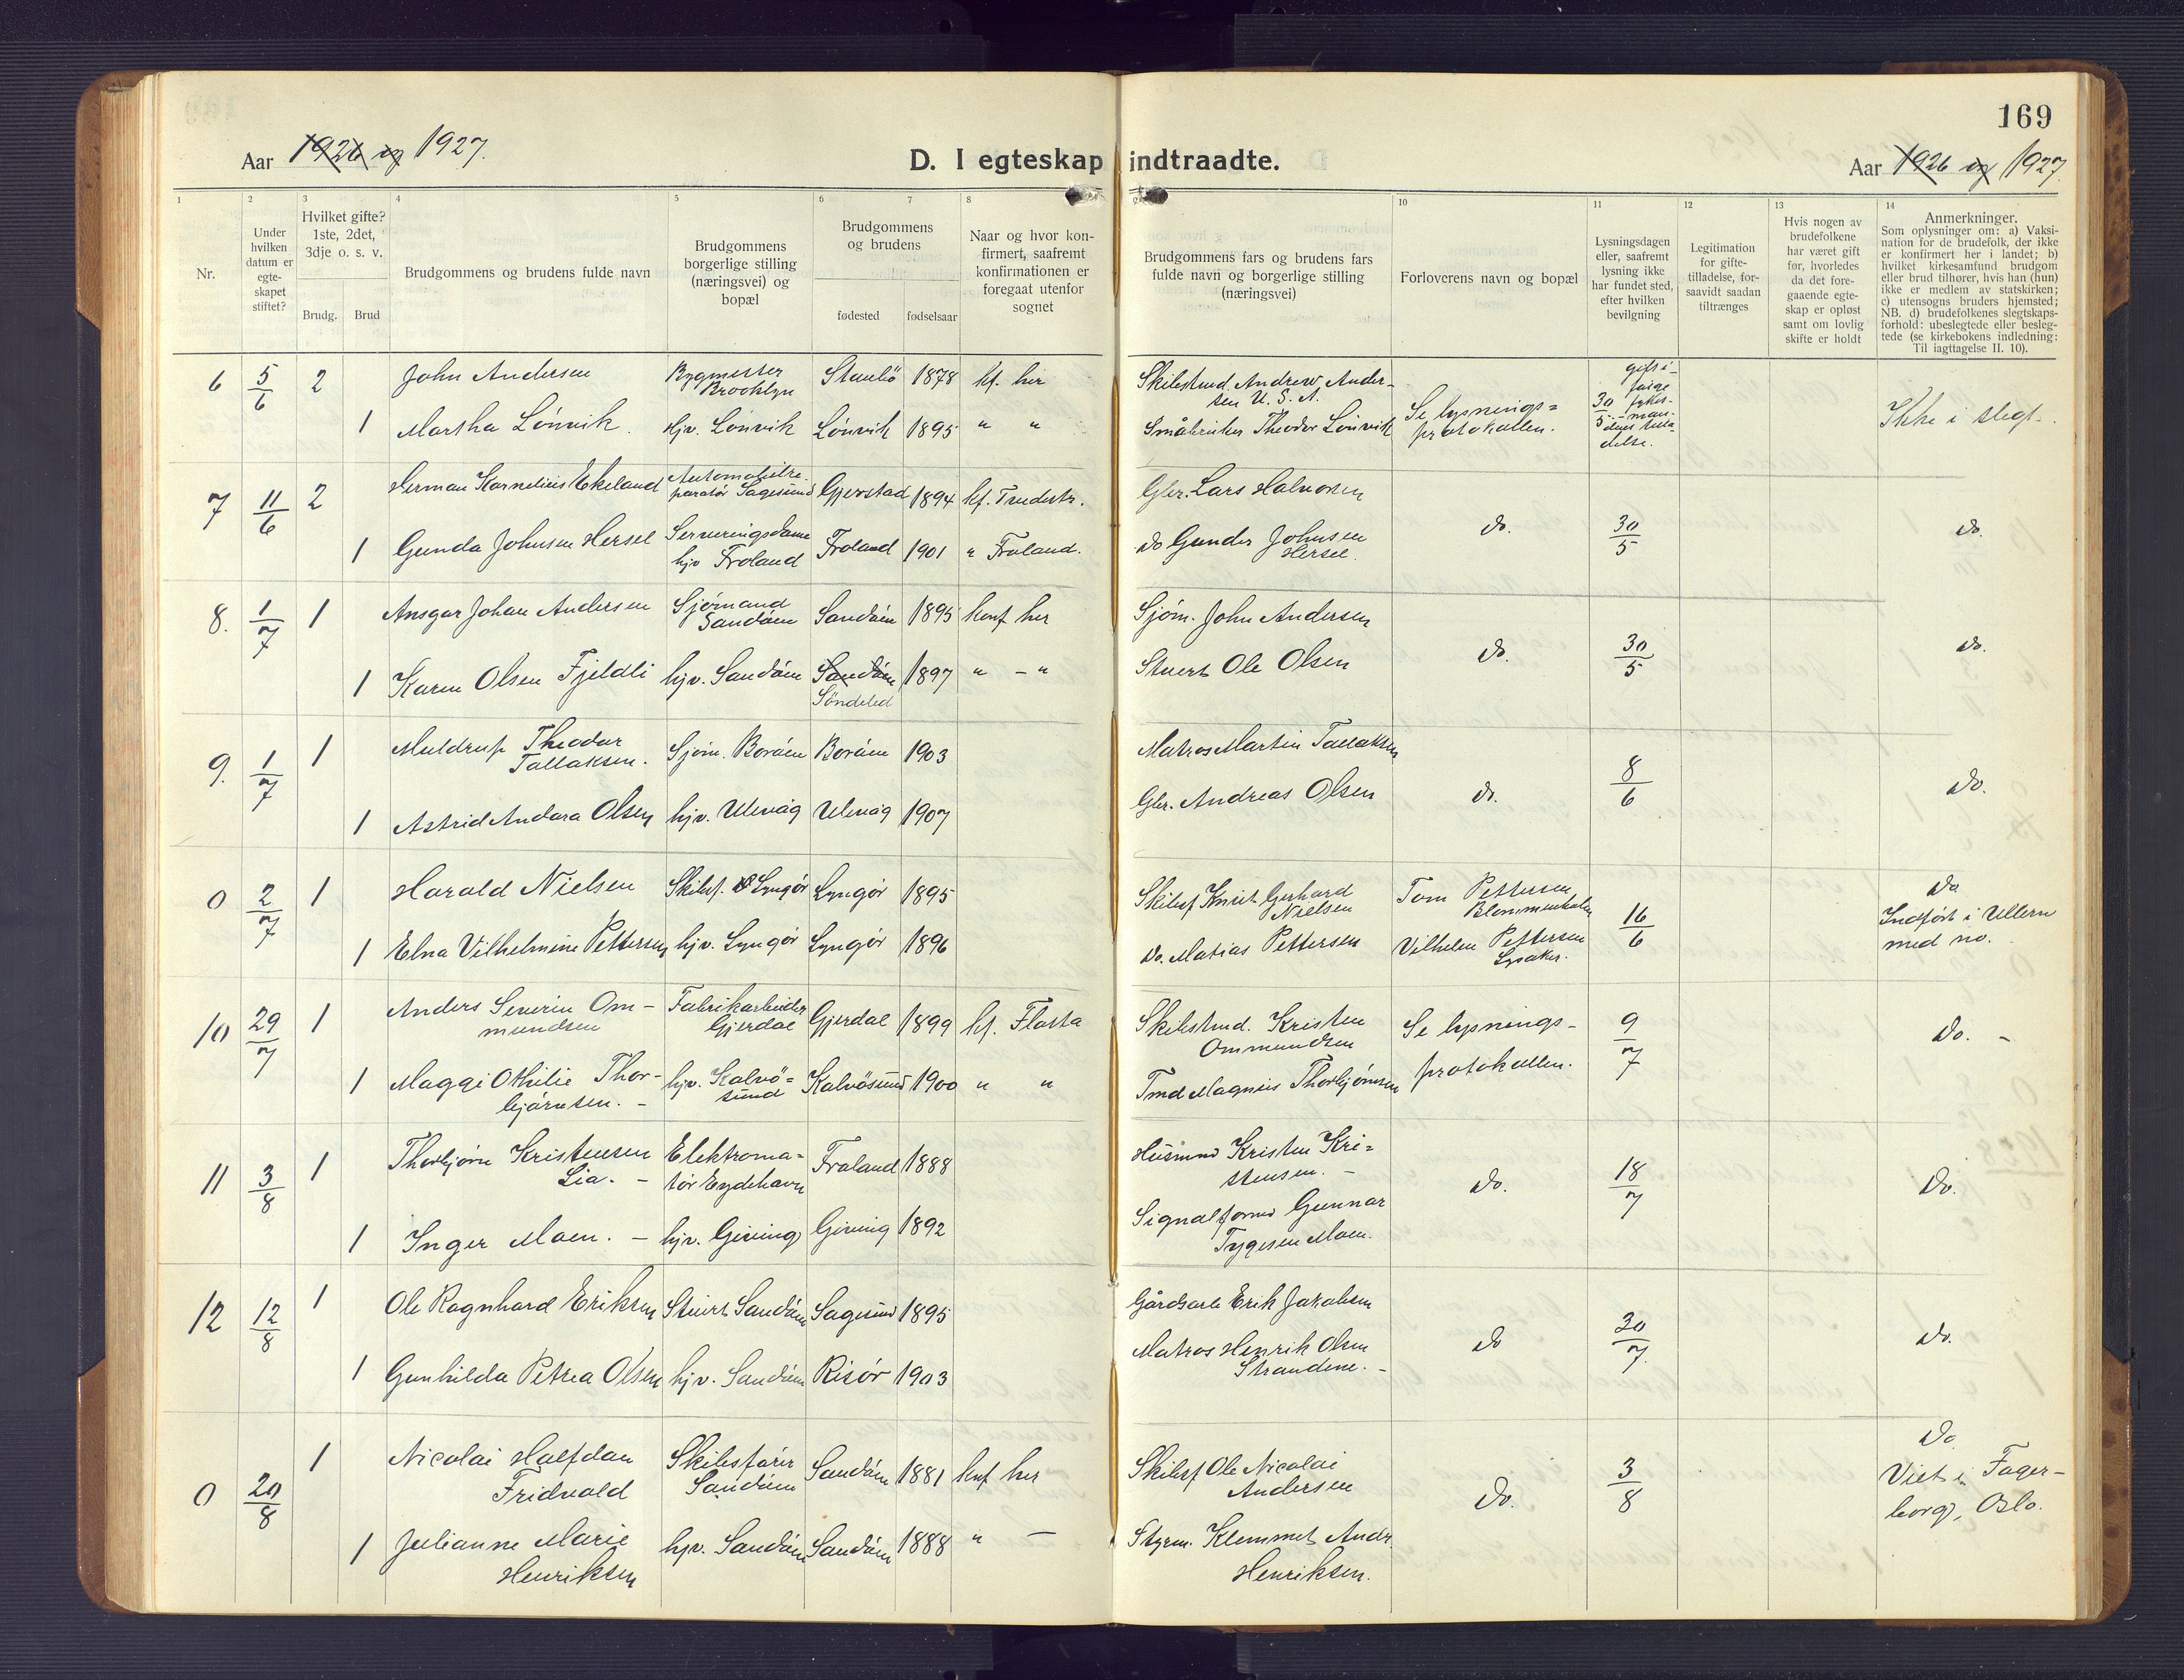 169
Aar 1926 og 1927.
D. I egteskap indtraadte.
Aar 1926 og 1927.
1
2
Under hvilken datum er egte-skapet stiftet?
3
Hvilket gifte? 1ste, 2det, 3dje o. s. v.
Brudg.
Brud
4
Brudgommens og brudens fulde navn
5
Brudgommens borgerlige stilling (næringsvei) og bopæl
6
7
Brudgommens og brudens
fødested
fødselsaar
8
Naar og hvor kon-firmert, saafremt konfirmationen er foregaat utenfor sognet
Nr.
Brudgommens fars og brudens fars fulde navn og borgerlige stilling (næringsvei)
10
Forloverens navn og bopæl
11
Lysningsdagen eller, saafremt lysning ikke har fundet sted, efter hvilken bevilgning
12
Legitimation for gifte-tilladelse, for-saavidt saadan tiltrænges
13
Hvis nogen av brudefolkene har været gift før, hvorledes da det fore-gaaende egte-skap er opløst samt om lovlig skifte er holdt
14
Anmerkninger.
Som oplysninger om: a) Vaksi-nation for de brudefolk, der ikke er konfirmert her i landet; b) hvilket kirkesamfund brudgom eller brud tilhører, hvis han (hun) ikke er medlem av statskirken; c) utensogns bruders hjemsted; NB. d) brudefolkenes slegtskaps-forhold: ubeslegtede eller besleg-tede (se kirkebokens indledning: Til iagttagelse II. 10).
6 5/6 2 John Andersen Bygmester Brooklyn Staubö 1878 kf. her Skibstmd. Andrew Ander-sen U. S. A.
1 Martha Lönvik. hjv. Lönvik Lönvik 1895 " " Småbruker Theodor Lönvik Se lysnings=protokollen. 30/5 Ikke i slegt.
7 11/6 2 Herman Kornelius Ekeland Automobilre-paratör Sagesund Gjerstad 1894 kf. Tvedestr. Gbr. Lars Halvorsen
1 Gunda Johnsen Hersel Serveringsdame hjv Froland Froland 1901 " Froland. do Gunder Johnsen Hersel. do. 30/5 do.
8. 1/7 1 Ansgar Johan Andersen Sjömand Sandöen Sandöen 1895 konf her Sjöm. John Andersen
1 Karen Olsen Fjeldli hjv. Sandöen Sandöen Söndeled 1897 " - " Stuert Ole Olsen do. 30/5 do.
9. 1/7 1 Muldrup Theodor Tallaksen. Sjöm. Boröen Boröen 1903 Matros Martin Tallaksen
1 Astrid Andora Olsen hjv. Ulevåg Ulevåg 1907 Gbr. Andreas Olsen do. 8/6 do.
0 2/7 1 Harald Nielsen Skibsf. Lyngör Lyngör 1895 Skibsf Knut Gerhard Nielsen Tom Pettersen Blommenholm
1 Elna Vilhelmine Pettersen hjv. Lyngör Lyngör 1896 do. Matias Pettersen Vilhelm Pettersen Lysaker. 16/6 do Indfört i Ullern med no.
10 29/7 1 Anders Severin Om-mundsen Fabrikarbeider Gjerdal Gjerdal 1899 kf. Flosta Skibstmd. Kristen Ommundsen
1 Maggi Othilie Thor-björnsen. - hjv. Kalvö=sund Kalvösund 1900 " " Tmd Magnus Thorbjörnsen Se lysnings-protokollen. 9/7 do. -
11 3/8 1 Thorbjörn Kristensen Lia. - Elektroma=tör Eydehavn Froland 1888 Husmnd Kristen Kri=stensen. -
1 Inger Moen. - hjv. Giving Giving 1892 Signalformd Gunnar Tygesen Moen. do. 18/7 do.
12 12/8 1 Ole Ragnhard Eriksen Stuert Sandöen Sagesund 1895 Gårdsarb Erik Jakobsen
1 Gunhilda Petrea Olsen hjv. Sandöen Risör 1903 Matros Henrik Olsen Strandene. - do 30/7. do.
0 20/8 1 Nicolai Halfdan Fridvald Skibsförer Sandöen Sandöen 1881 konf her Skibsf Ole Nicolai Andersen
1 Julianne Marie Henriksen hjv. Sandöen Sandöen 1888 " — Styrm. Klemmet Andr. Henriksen. do. 3/8 do Viet i Fager-borg, Oslo.